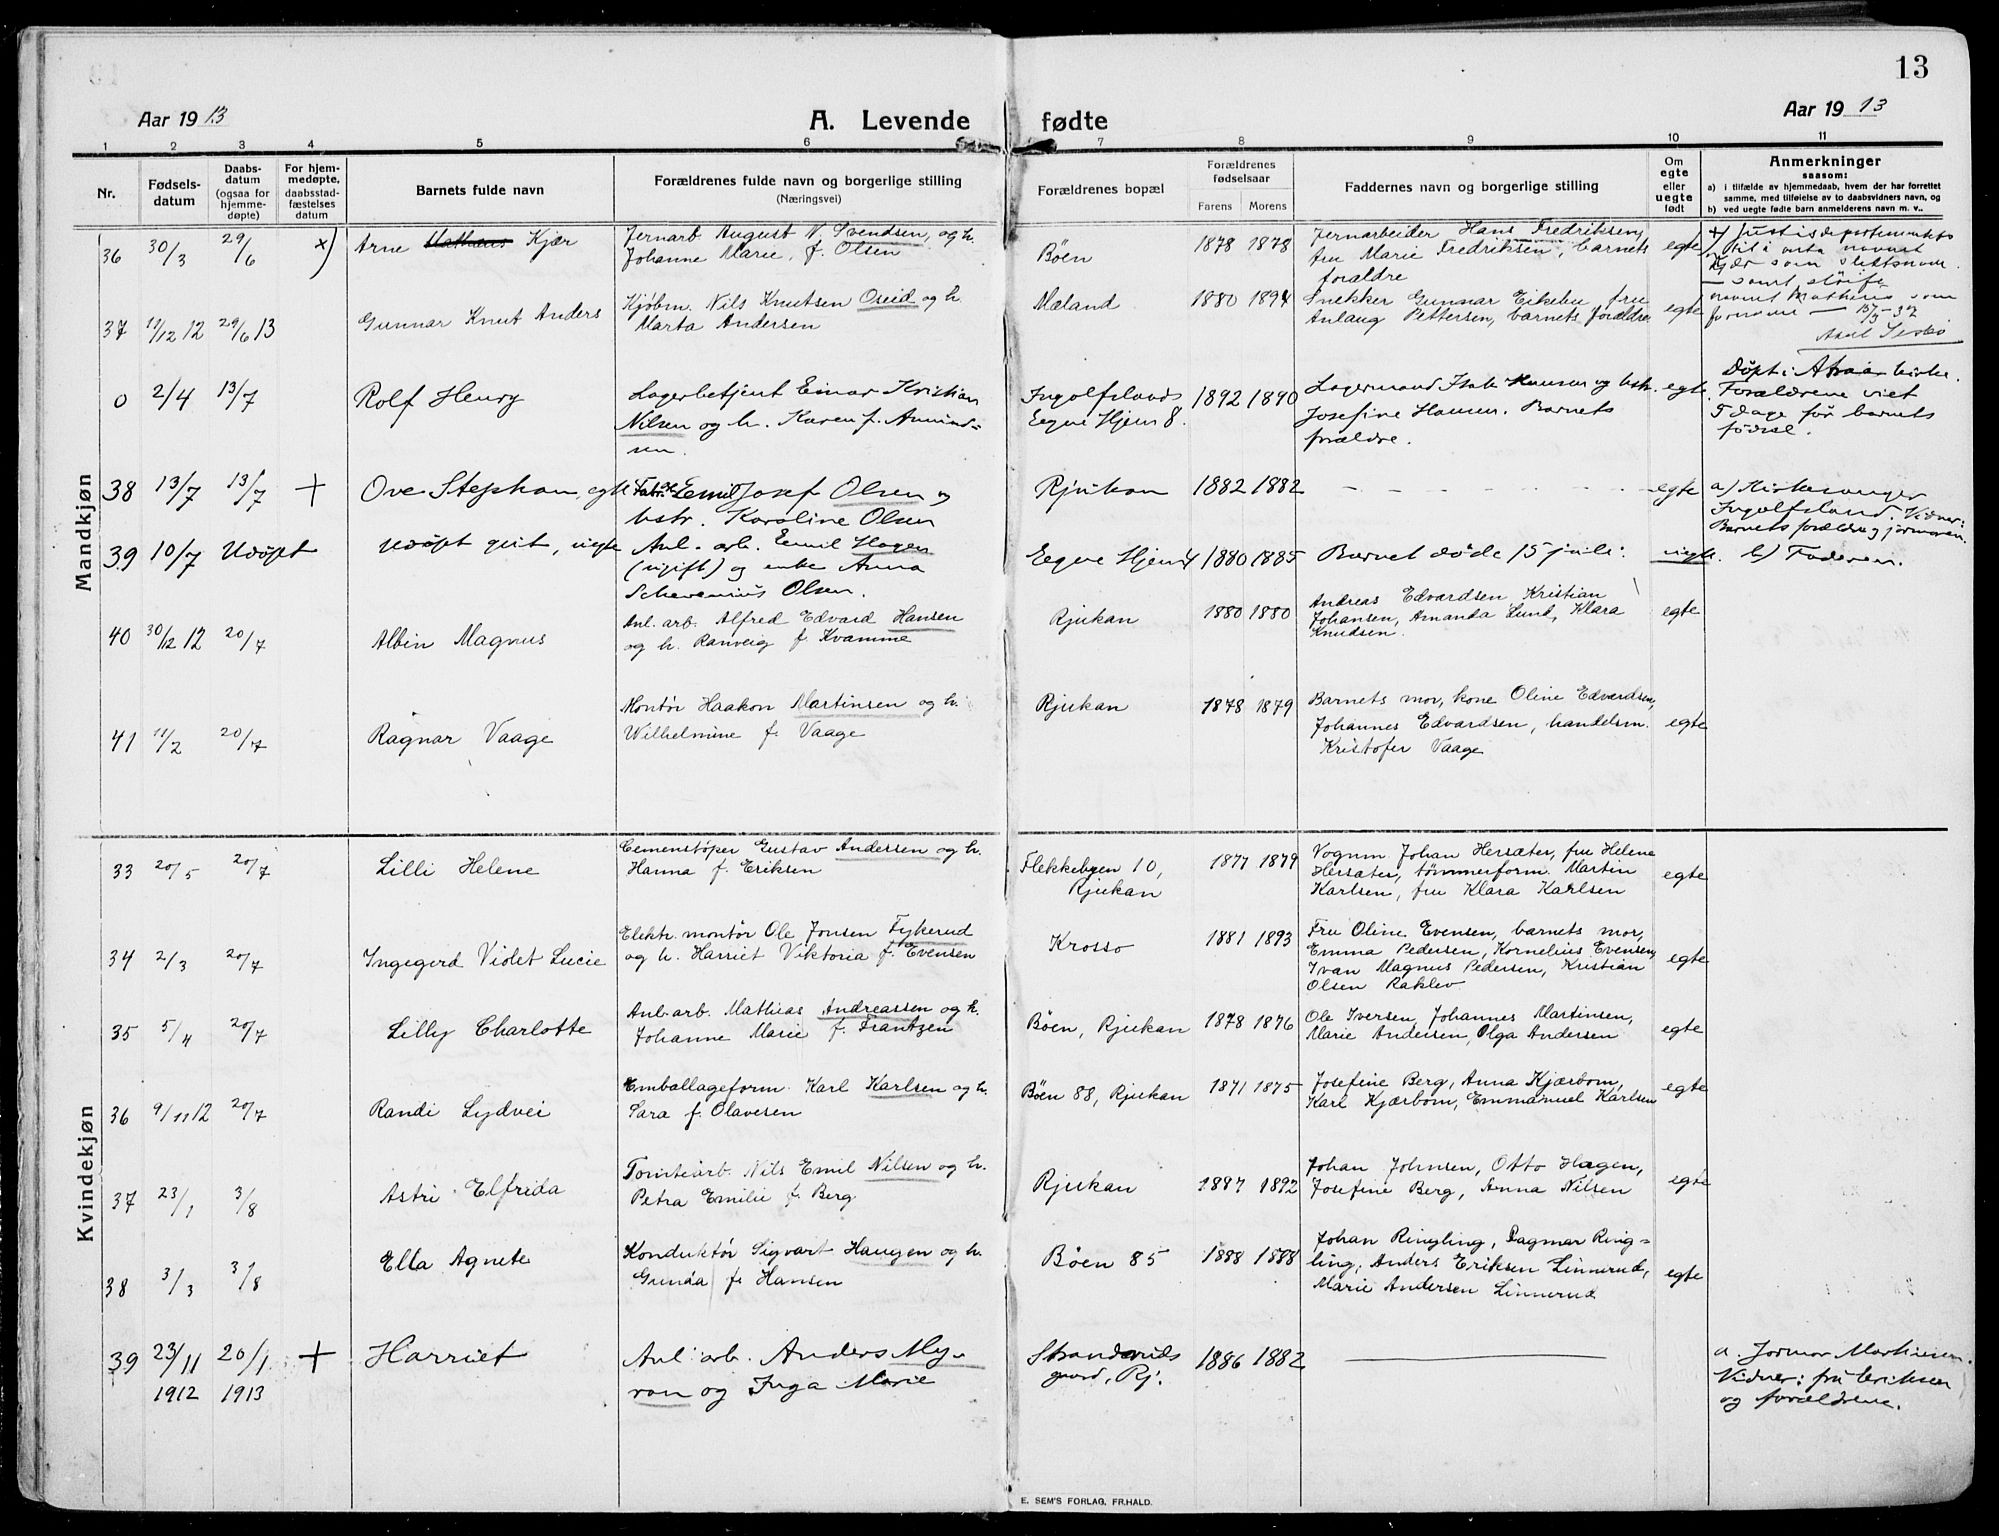 13
Aar 1913 A. Levende fødte Aar 1913
1 2 3 4 5 6 7 8 9 10 11
Nr. Fødsels-datum Daabs-datum (ogsaa for hjemme-døpte) For hjem-medøpte, daabsstad-fæstelses datum Barnets fulde navn Forældrenes fulde navn og borgerlige stilling (Næringsvei) Forældrenes bopæl Forældrenes fødselsaar Farens Morens Faddernes navn og borgerlige stilling Om egte eller uegte født Anmerkninger
saasom:
a) i tilfælde av hjemmedaab, hvem der har forrettet
samme, med tilføielse av to daabsvidners navn, og
b) ved uegte fødte barn anmelderens navn m. v..
Mandkjøn
36 30/3 29/6 x) Arne Mathæus Kjær Jernarb August N. Svendsen, og h. Johanne Marie, f. Olsen Bøen 1878 1878 Jernarbeider Hans Fredriksen, fru Marie Fredriksen, barnets foraldre egte
37 12 29/6 13 Gunnar Knut Anders Kjøbm. Nils Knutsen Oseid og h. Marta Andersen Mæland 1880 1894 Snekker Gunnar Eikebu, fru Anlaug Pettersen, barnets forældre egte
0 2/4 13/7 Rolf Henry Lagerbetjent Einar Kristian Nilsen og h. Karen f. Amundsen Ingolfslands Eegne Hjem 8. 1892 1890 Lagermand Hansen og hstr. Josefine Hansen. Barnets forældre. egte Døpt i kirke. Forældrene viet 5 dage før barnets fødsel.
38 13/7 13/7 + Ove Stephan, egte Emil Josef Olsen og hstr. Karoline Olsen Rjukan 1882 1882 - - - - - - - egte a) Kirkesanger Ingolfsland. Vidner: Barnets forældre og jormoren.
39 10/7 Udøpt Udøpt gut, uegte Anl. arb. Emil Hagen (ugift) og enke Anna Schevenius Olsen. Eegne Hjem 4 1880 1885 Barnet døde 15 juli. uegte. b) Faderen.
40 30/12 12 20/7 Albin Magnus Anl. arb. Alfred Edvard Hansen og h. Ranveig f. Kvamme Rjukan 1880 1880 Andreas Edvardsen Kristian Johansen, Amanda Lund, Klara Knudsen. egte
41 11/2 20/7 Ragnar Vaage Montør Haakon Martinsen og h. Wilhelmine f. Vaage Rjukan 1878 1879 Barnets mor, kone Oline Edvardsen, Johannes Edvardsen, handelsm. Kristofer Vaage egte
Kvindekjøn
33 20/5 20/7 Lilli Helene Cementstøper Gustav Andersen og h. Hanna f. Eriksen Flekkebyen 10, Rjukan 1877 1879 Vognm. Johan Hersæter, fru Helene Hersæter, tømmerform. Martin Karlsen, fru Klara Karlsen egte
34 2/3 20/7 Ingegerd Violet Lucie Elektr. montør Ole Jonsen Fykerud og h. Harriet Viktoria f. Evensen Krosso 1881 1893 Fru Oline Evensen, barnets mor, Emma Pedersen, Kornelius Evensen, Ivan Magnus Pedersen, Kristian Olsen Raklev egte
35 5/4 20/7 Lilly Charlotte Anl. arb. Mathias Andreassen og h. Johanne Marie f. Frantzen Bøen, Rjukan 1878 1876 Ole Iversen, Johannes Martinsen, Marie Andersen, Olga Andersen egte
36 9/11 12 20/7 Randi Lydvei Emballageform. Karl Karlsen og h. Sara f. Olavesen Bøen 88, Rjukan 1871 1875 Josefine Berg, Anna Kjærbom, Karl Kjærbom, Emmanuel Karlsen egte
37 23/1 3/8 Astri Elfrida Tomtearb. Nils Emil Nilsen og h. Petra Emilie f. Berg Rjukan 1887 1892 Johan Johnsen, Otto Hagen, Josefine Berg, Anna Nilsen egte
38 3/3 3/8 Ella Agnete Konduktør Sigvart Haugen og h. Gunda f. Hansen Bøen 85 1888 1888 Johan Ringling, Dagmar Ringling, Anders Eriksen Linnerud, Marie Andersen Linnerud egte
39 23/11 1912 20/1 1913 + Harriet Anl. arb. Anders Myran og Inga Marie Rj. 1886 1882 a. Jormor Martinsen. Vidner: fru Eriksen og forældrene.
E. SEM'S FORLAG, FR.HALD.